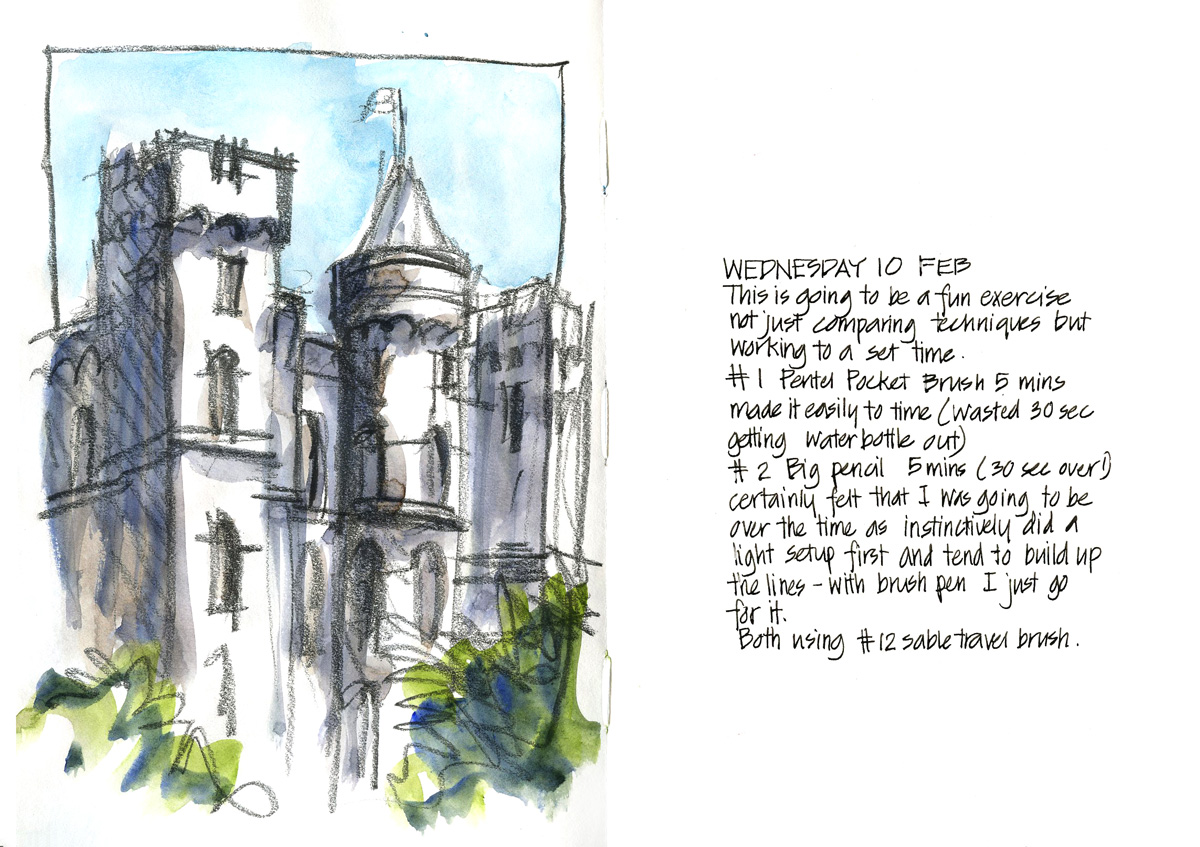 WEDNESDAY 10 FEB
This is going to be a fun exercise
not just comparing techniques but
working to a set time.
#1 Pentel Pocket Brush 5 mins
made it easily to time (wasted 30 sec
getting water bottle out)
#2 Big pencil 5mins (30 sec over!)
certainly felt that I was going to be
over the time as instinctively did a
light setup first and tend to build up
the lines - with brush pen I just go
for it.
Both using #12 sable travel brush.